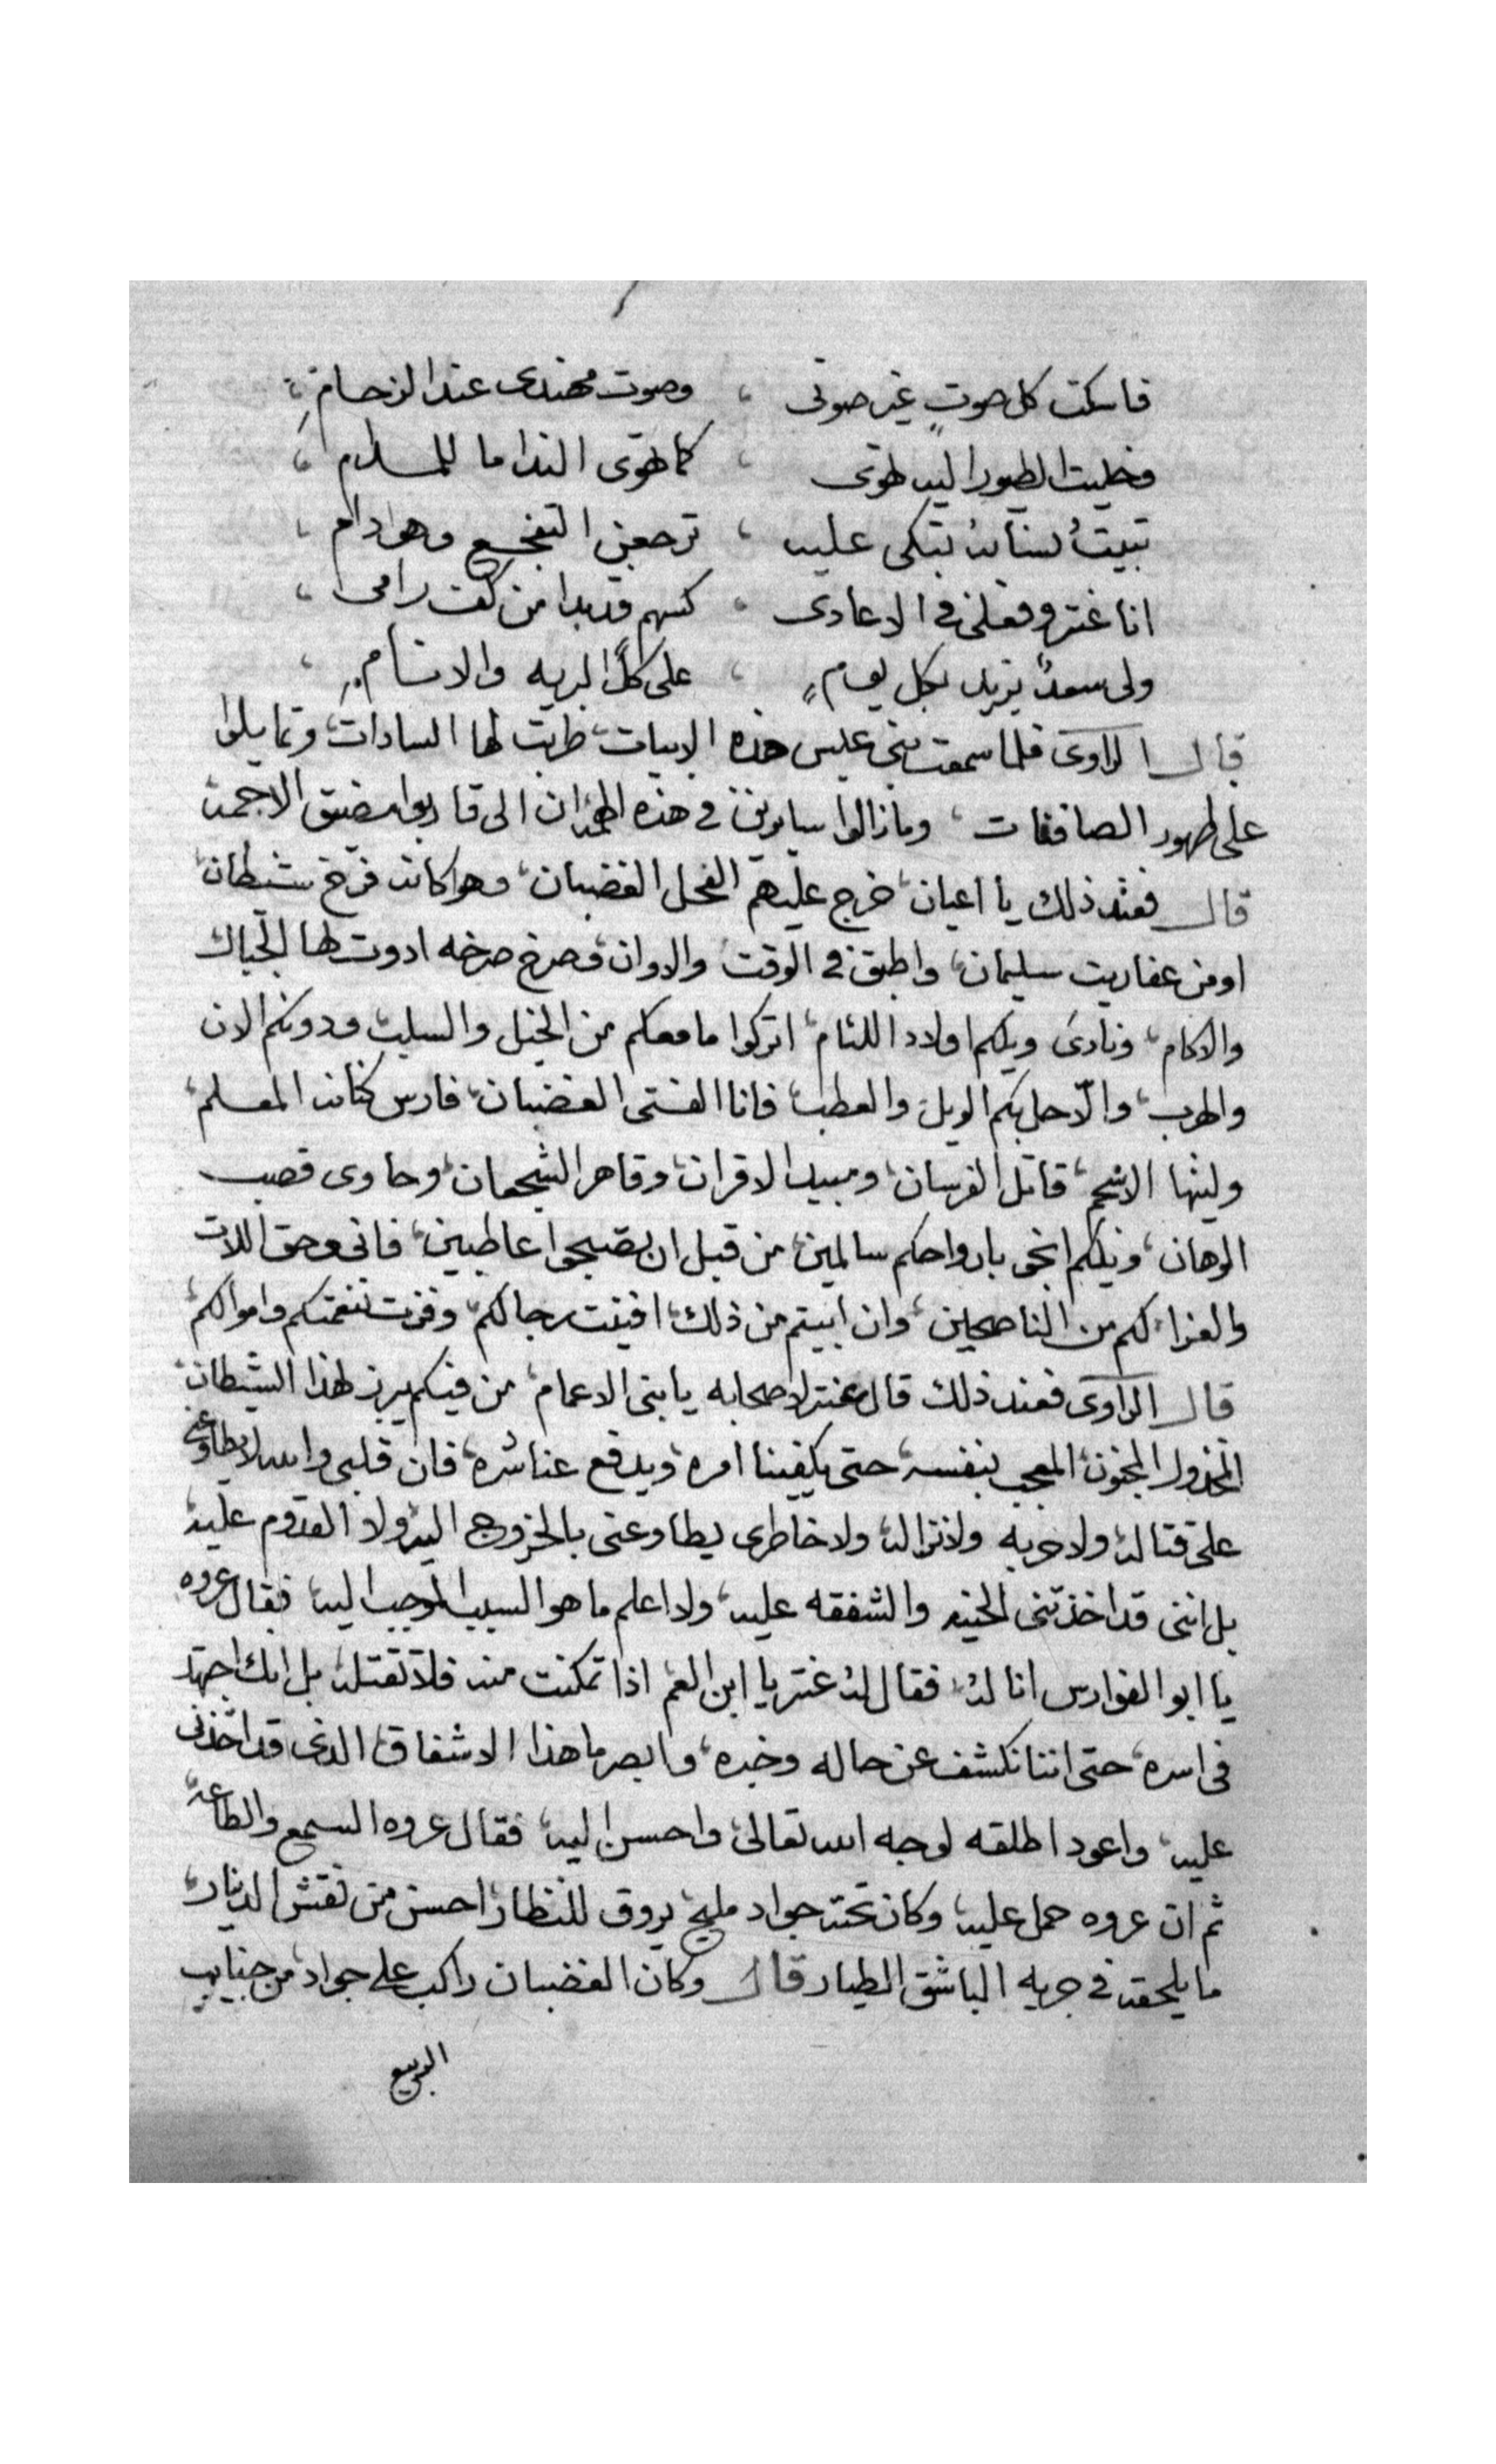 فاسكت كل صوتٍ غير صوتى ، وصوت مهندى عند الزحام ،
وخليت الطيور اليه تهوى ، كما تهوى الندا ما للمدام ،
تبيتُ نسائهُ تبكى عليه ، ترجعن التفجع وهو دام ،
انا عنتر وفعلى فى الاعادى ، كسهم قد بدا من كف رامى ،
ولى سعدٌ يزيد بكل يوم ، على كل البريه والانام
قال الراوى فلما سمعت بنى عبس هذه الابيات، طربت لها السادات، وتمايلوا
على ظهور الصافنات ، ومازالوا سايرين فى هذه الى قاربوا مضيق الاجمه
قال فعند ذلك يا اعيان، خرج عليهم الفحل الغضبان، وهو كانه فرخ شيطان،
او من عفاريت سليمان، واطبق فى الوقت والاوان، وصرخ صرخه ادوت لها الجبال
والاكام، ونادى ويلكم اولاد اللئام، اتركوا ما معكم من الخيل والسلب، ودونكم الان
والهرب، والّا حل بكم الويل والعطب، فانا الفتى الغضبان، فارس كنانه المعلم،
وليثها الاشحم، قاتل الفرسان، ومبيد الاقران، وقاهر الشجعان، وحاوى قصب
الرهان، ويلكم انجو بارواحكم سالمين، من قبل ان تصبحوا عاطبين، فانى وحق اللات
والعزا، لكم من الناصحين، وان ابيتم من ذلك، افنيت رجالكم، وفزت بنعمتكم واموالكم،
قال الراوى فعند ذلك قال عنتر لاصحابه يا بنى الاعمام، من فيكم يبرز لهذا الشيطان،
المخذول المجنون، المعجب بنفسه، حتى يكفينا امره، ويدفع عنا شره، فان قلبى والله لا يطاوعنى
على قتاله، ولا حربه ولا نزاله، ولا خاطرى يطاوعنى بالخروج اليه، ولا القدوم عليه
بل اننى قد اخذتنى الحنيه والشفقه عليه، ولا اعلم ما هو السبب الموجب اليه، فقال عروه
يا ابو الفوارس انا لهُ، فقال لهُ عنتر يا ابن العم اذا تمكنت منه فلا تقتله، بل انك اجتهد
فى اسره، حتى اننا نكشف عن حاله وخبره، وابصر ما هذا الاشفاق، الذى قد اخذنى
عليه، واعود اطلقه لوجه الله تعالى، واحسن اليه، فقال عروه السمع والطاعه،
ثم ان عروه حمل عليه، وكان تحته جواد مليح، يروق للنظار، احسن من نقش الدينار،
ما يلحقه فى جريه الباشق الطيار قال وكان الغضبان راكب على جواد، من جنايب
الربيع